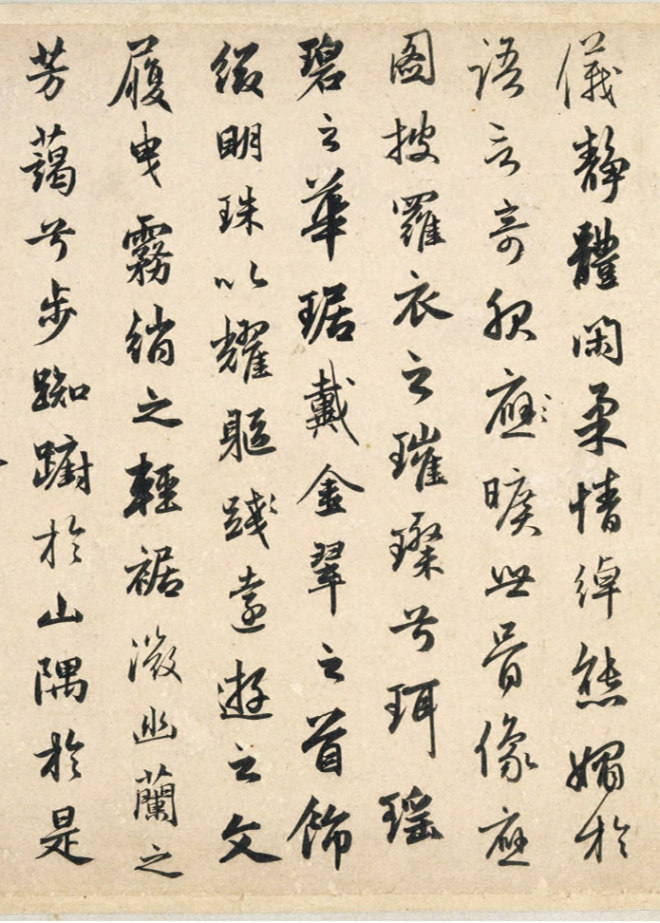 儀靜體閑柔情綽態媚於
語言奇服應曠世骨像應
圖披羅衣之璀璨兮珥瑤
碧之華琚戴金翠之首飾
綴明珠以耀軀踐遠遊之文
履曳霧綃之輕裾微幽蘭之
芳藹兮步踟躕於山隅於是